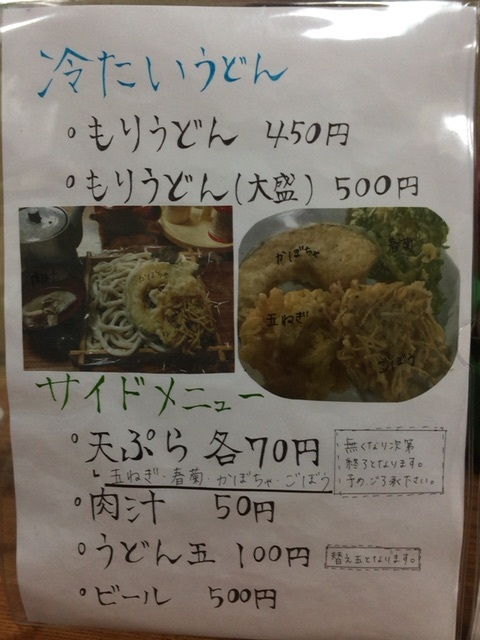 冷たいうどん
もりうどん 450円
もりうどん(大盛) 500円
かぼちゃ
春菊
玉ねぎ
ごぼう
サイドメニュー
天ぷら 各70円
玉ねぎ・春菊・かぼちゃ・ごぼう
無くなり次第
終了となります。
予めご了承下さい。
肉汁 50円
うどん玉 100円
替え玉となります。
ビール 500円